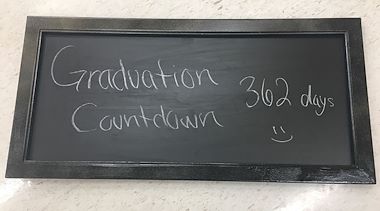 Graduation
Countdown
362 days